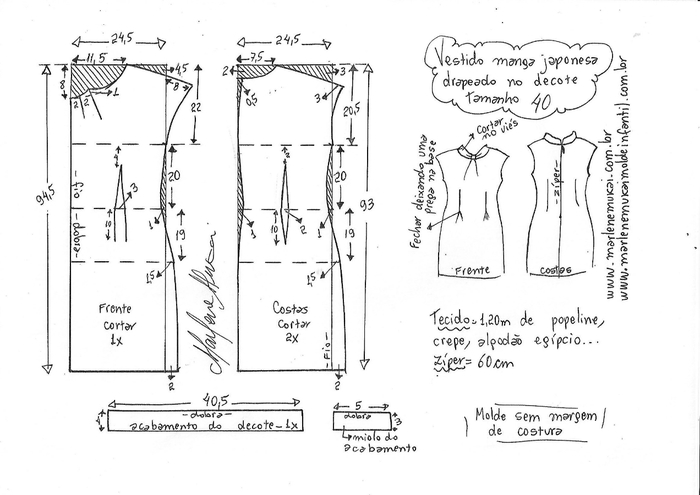 24,5
11,5
4,5
8
8
2
2
1
22
94,5
4
20
3
10
1
19
1,5
-dobra-
-fio-
Frente
cortar
1x
2
24,5
7,5
2
3
3
0,5
20,5
93
2
20
10
2
1
1
19
1,5
Costas
Cortar
2x
-Fio-
2
Vestido manga japonesa
drapeado no decote
tamanho 40
Cortar
no viés
Fechar deixando uma
prega na base
-zíper-
Frente
Costas
www.marlenemukai.com.br
www.marlenemukaimoldeinfantil.com.br
Tecido=1,20m de popeline,
crepe, algodão egípcio...
zíper=60cm
40,5
-dobra-
acabamento do decote-1x
5
dobra
3
miolo do
acabamento
Molde sem margem
de costura